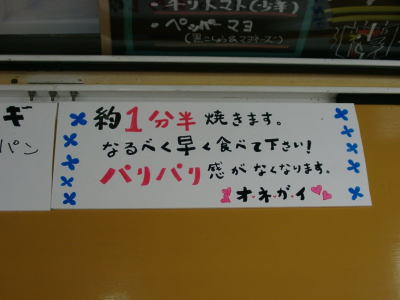 ・ネリトマト(沙羊)
・ペッパーマヨ
(黒こしょう&マヨネーズ)
ギ
パン
約1分半焼きます。
なるべく早く食べて下さい!
パリパリ感がなくなります。
オ・ネ・ガ・イ